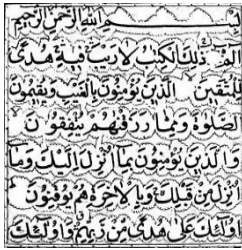 بِسْمِ اللهِ الرَّحْمٰنِ الرَّحِيْمِ
الٓمّٓ ذٰلِكَ الْكِتٰبُ لَا رَيْبَ فِيْهِ هُدًى
لِّلْمُتَّقِيْنَ الَّذِيْنَ يُؤْمِنُوْنَ بِالْغَيْبِ وَيُقِيْمُوْنَ
الصَّلٰوةَ وَمِمَّا رَزَقْنٰهُمْ يُنْفِقُوْنَ
وَالَّذِيْنَ يُؤْمِنُوْنَ بِمَا اُنْزِلَ اِلَيْكَ وَمَا
اُنْزِلَ مِنْ قَبْلِكَ وَبِالْاٰخِرَةِ هُمْ يُوْقِنُوْنَ
اُولٰٓئِكَ عَلٰى هُدًى مِّنْ رَّبِّهِمْ وَاُولٰٓئِكَ